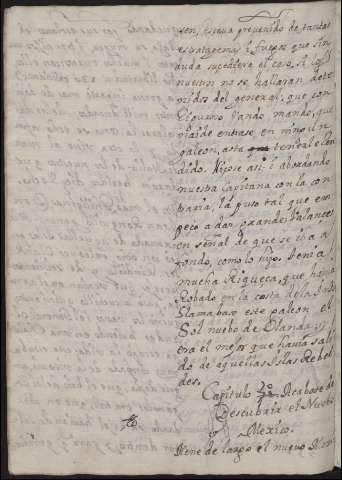 sen, estava prevenido de tantas
estratagemas i fuegos que sin
duda sucediera el caso, si los
nuestros no se hallaran dete
nidos del general, que con
vando, mando, que
nadie entrase en ningun
galeon, asta tenerle ren
dido. Hiçose asi, i abordando
nuestra Capitana con la con
traria, la puso tal que em
peço a dar grandes valances
en señal de que se iba a
fondo, como lo hiço. tenia
mucha Riqueça, que havia
Robado en la costa de la India
llamabase este galeon el
Sol nuebo de Olanda, i
era el mejor que havia sali
do de aquellas Islas Rebel
des.
Capitulo 2º Acabase de
Descubrir el Nuebo
Mexico.
tiene de largo el nuevo Mexi